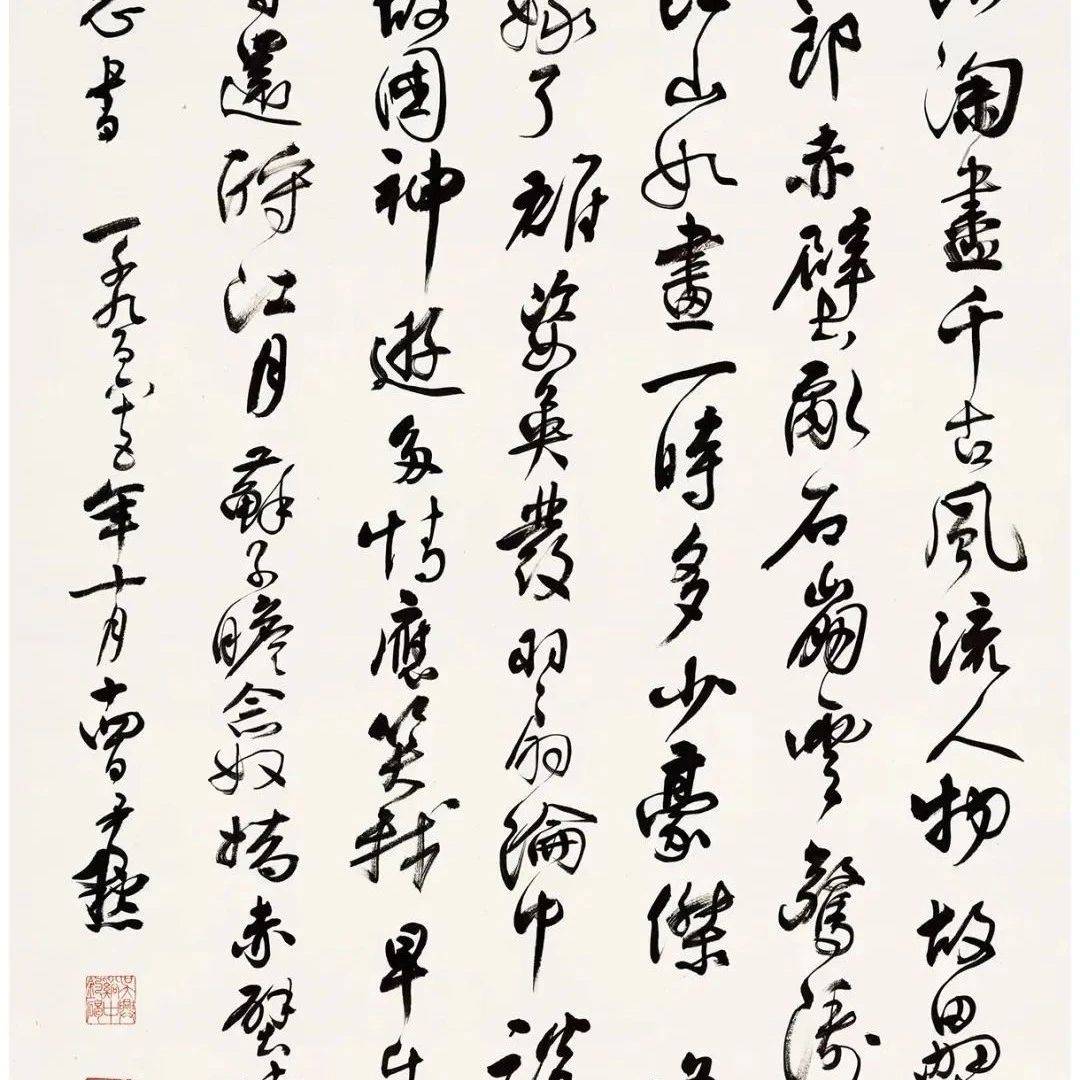 淘盡千古風流人物故壘
郎赤壁亂石崩雲驚濤
江山如畫一時多少豪傑
嫁了雄姿英發羽扇綸巾談
故國神遊多情應笑我早生
還酹江月蘇子瞻念奴嬌赤壁
書一千九百六十五年十月十四日尹默